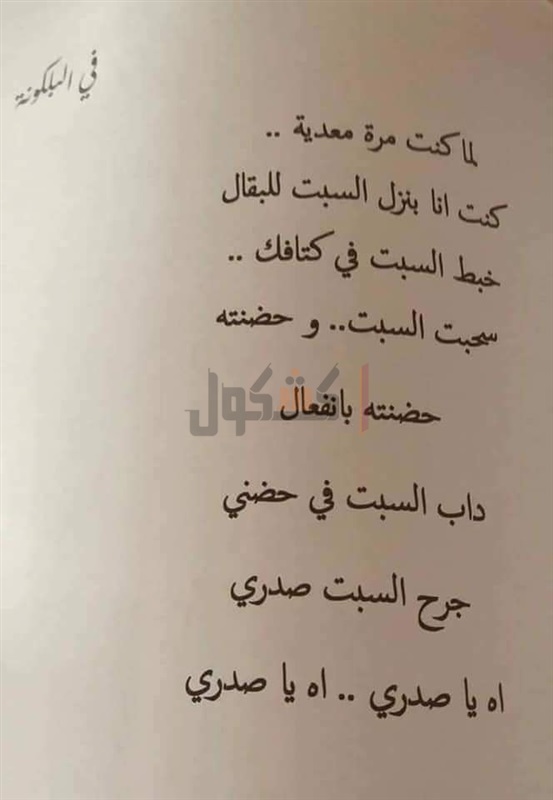 في البلكونة
لما كنت مرة معدية ..
كنت انا بنزل السبت للبقال
خبط السبت في كتافك ..
سحبت السبت.. و حضنته
كشكول
حضنته بانفعال
داب السبت في حضني
جرح السبت صدري
اه يا صدري .. اه يا صدري